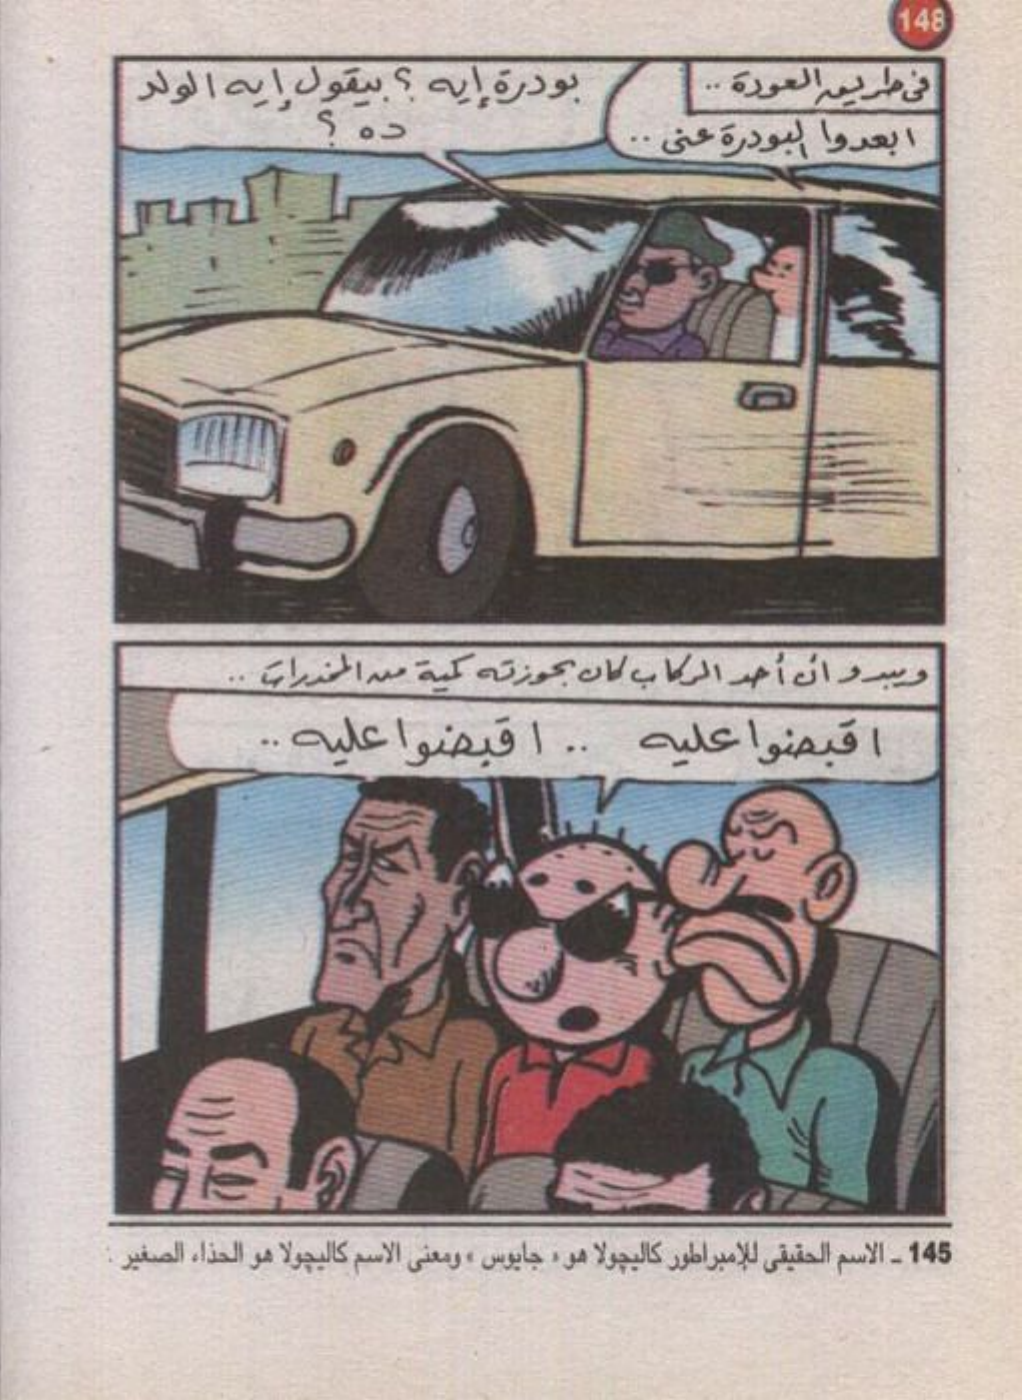 148
فى طريق العودة ..
ابعدوا البودرة عنى ..
بودرة إيه ؟ بيقول إيه الولد
ده ؟
ويبدو أن أحد الركاب كان بحوزته كمية من المخدرات ..
اقبضوا عليه .. اقبضوا عليه ..
145 ـ الاسم الحقيقى للإمبراطور كاليچولا هو « جايوس » ومعنى الاسم كاليچولا هو الحذاء الصغير :